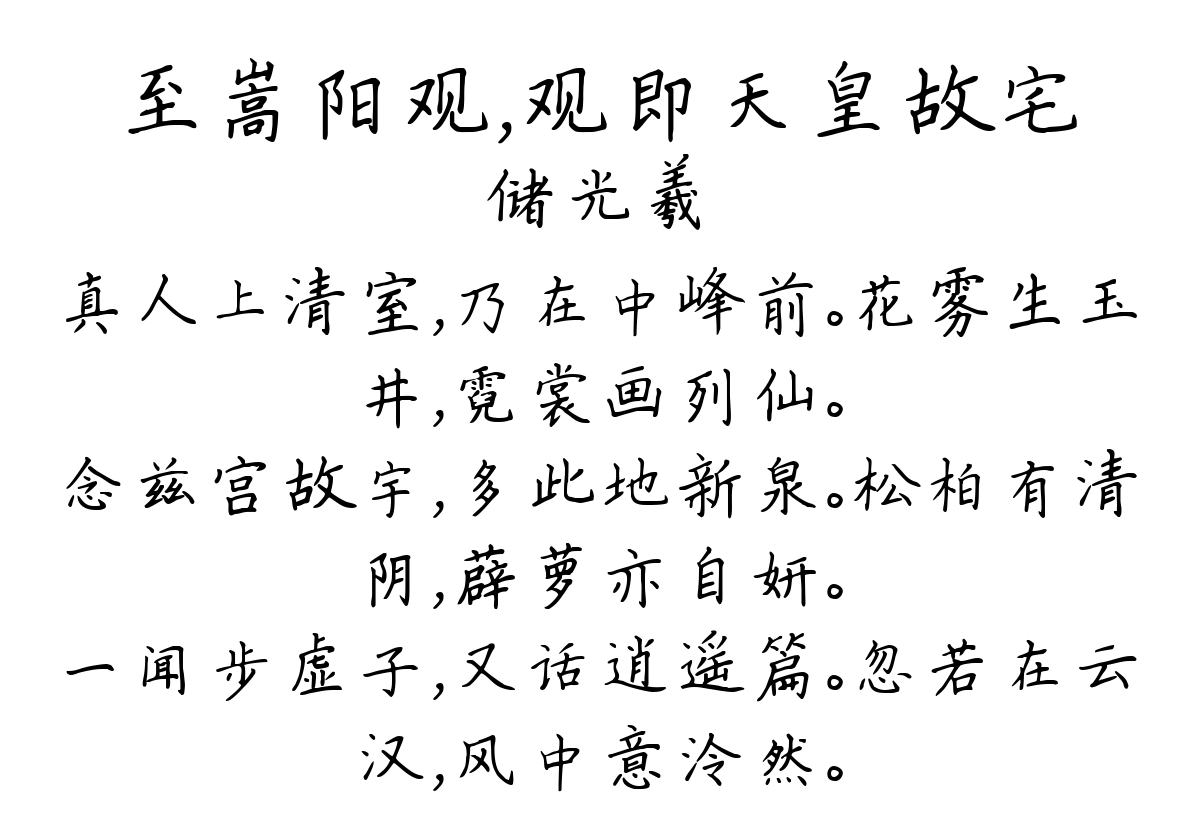 至嵩阳观,观即天皇故宅
储光羲
真人上清室,乃在中峰前。花雾生玉
井,霓裳画列仙。
念兹宫故宇,多此地新泉。松柏有清
阴,薜萝亦自妍。
一闻步虚子,又话逍遥篇。忽若在云
汉,风中意泠然。